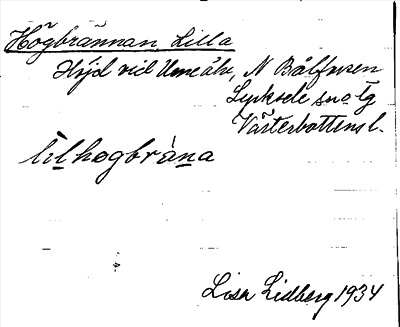 Högbrännan, Lilla
Höjd vid Umeälv, N Bålforsen
Lycksele sn o tg
Västerbottens l.
lilhogbràna
Lisa Lidberg 1934